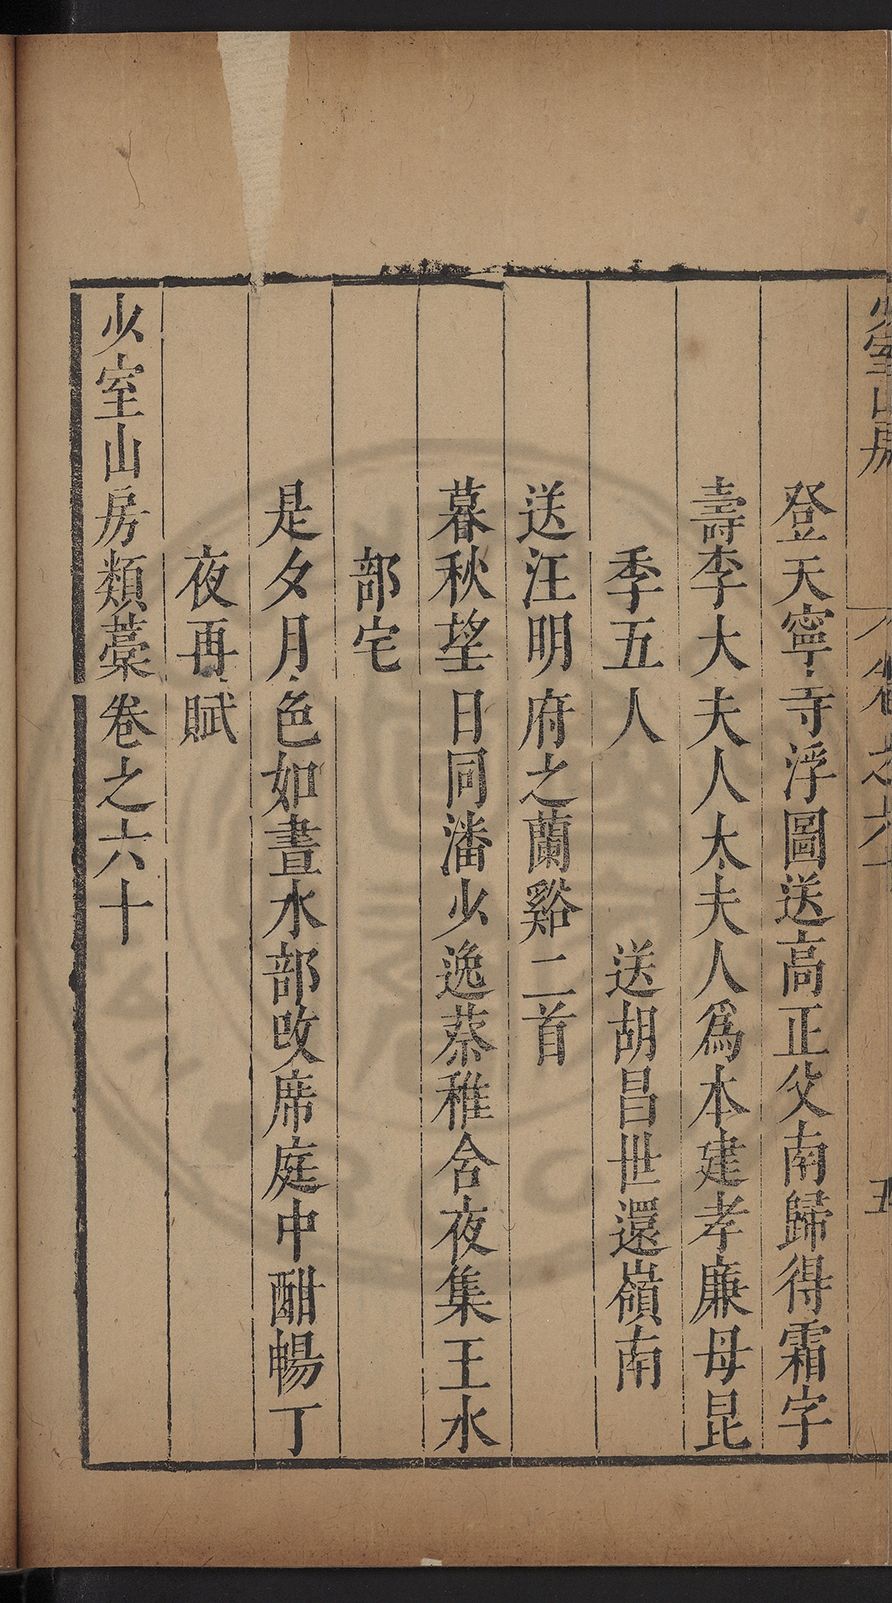 少室山房
卷之六十
五
登天寧寺浮圖送高正父南歸得霜字
壽李大夫人太夫人爲本建孝廉母昆
季五人 送胡昌世還嶺南
送汪明府之蘭谿二首
暮秋望日同潘少逸蔡稚含夜集王水
部宅
是夕月色如晝水部改席庭中酣暢丁
夜再賦
少室山房類藁卷之六十